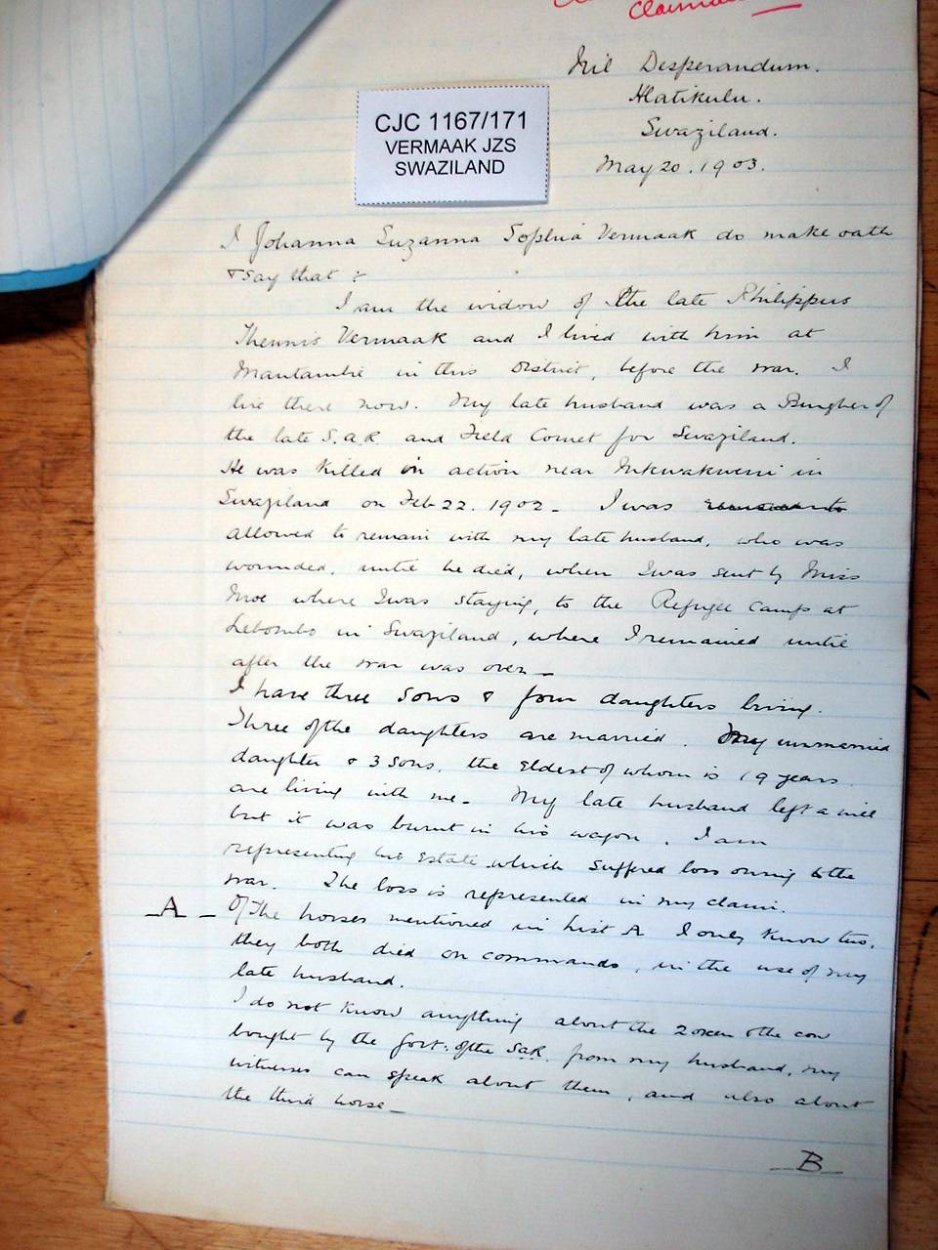 Claimant
Nil Desperandum.
Hlatikulu.
Swaziland.
May 20. 1903.
CJC 1167/171
VERMAAK JZS
SWAZILAND
I Johanna Suzanna Sophia Vermaak do make oath
& say that :-
I am the widow of the late Philippus
Theunis Vermaak and I lived with him at
Mantambe in this District, before the war. I
live there now. My late husband was a Burgher of
the late S.A.R and Field Cornet for Swaziland.
He was killed in action near in
Swaziland on Feb 22. 1902 - I was
allowed to remain with my late husband, who was
wounded, until he died, when I was sent by Miss
Moe where I was staying, to the Refugee Camp at
Lebombo in Swaziland, where I remained until
after the war was over -
I have three sons & four daughters living.
Three of the daughters are married. My unmarried
daughter & 3 sons, the eldest of whom is 19 years
are living with me - My late husband left a will
but it was burnt in his wagon. I am
representing his Estate which suffered loss owing to the
war. The loss is represented in my claim.
-A- Of the horses mentioned in List A I only know two,
they both died on commando, in the use of my
late husband.
I do not know anything about the 2 oxen & the cow
bought by the Govt: of the SAR. from my husband, my
witnesses can speak about them, and also about
the third horse -
-B-